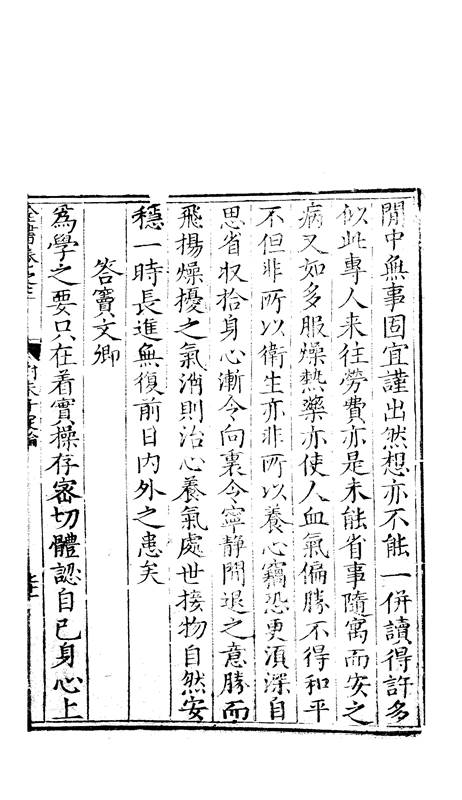 閒中無事固宜謹出然想亦不能一併讀得許多
似此專人来往勞費亦是未能省事隨寓而安之
病又如多服燥熱藥亦使人血氣偏勝不得和平
不但非所以衛生亦非所以養心竊恐更湏深自
思省收拾身心漸令向裏令寧静閒退之意勝而
飛揚燥擾之氣消則治心養氣處世接物自然安
穩一時長進無復前日内外之患矣
答竇文卿
爲學之要只在着實操存宻切體認自已身心上